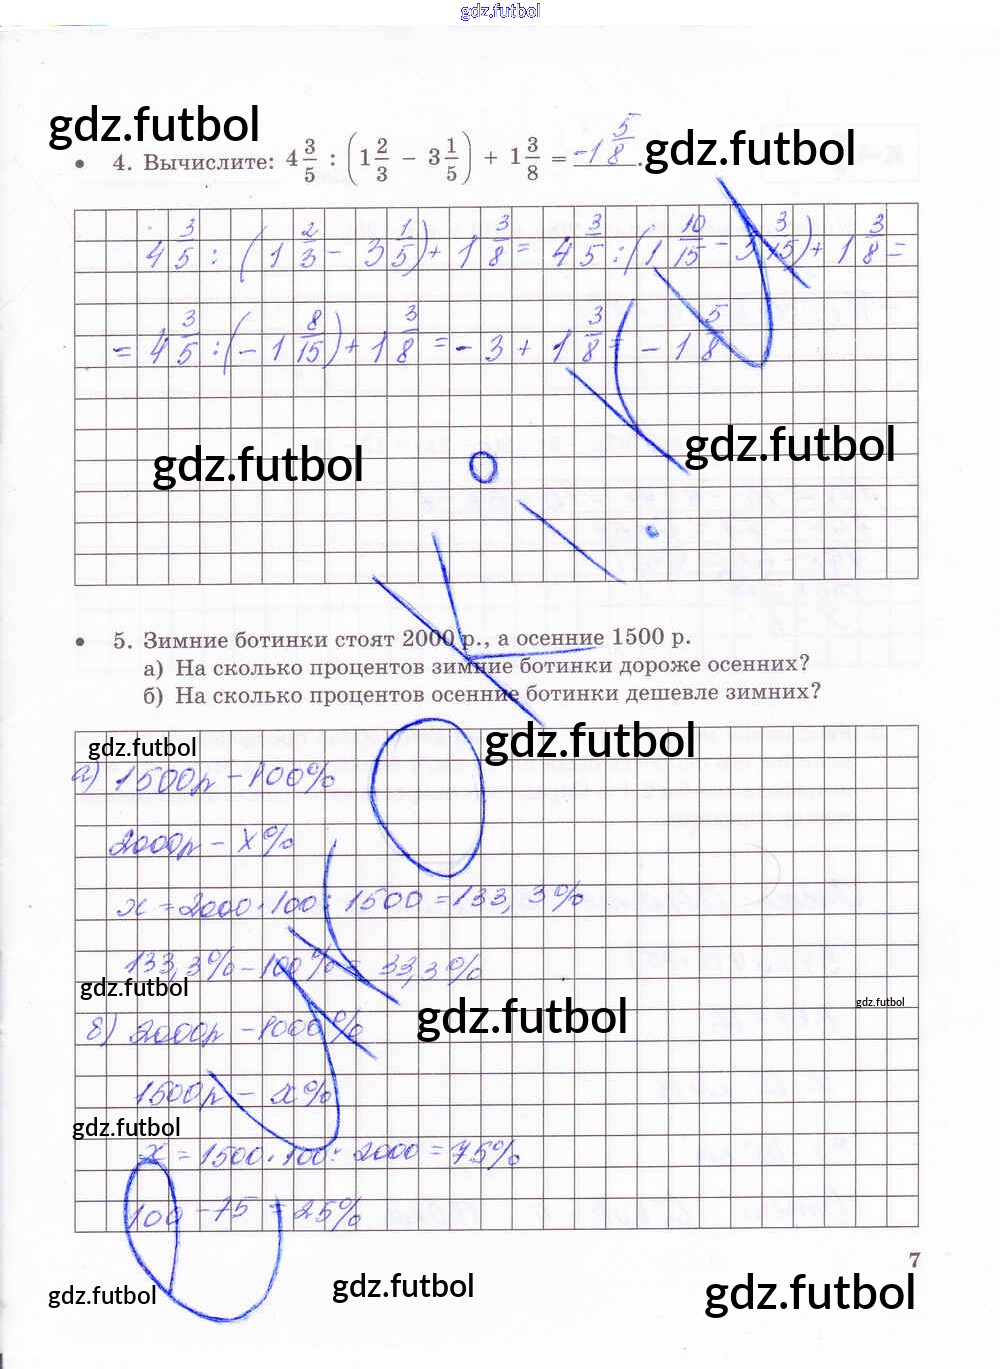 gdz.futbol
gdz.futbol
• 4. Вычислите: 4 3/5 : (1 2/3 − 3 1/5) + 1 3/8 = -1 5/8.
gdz.futbol
4 3/5 : (1 2/3 - 3 1/5) + 1 3/8 = 4 3/5 : (1 10/15 - 3 3/15) + 1 3/8 =
= 4 3/5 : (- 1 8/15) + 1 3/8 = - 3 + 1 3/8 = - 1 5/8
gdz.futbol
gdz.futbol
• 5. Зимние ботинки стоят 2000 р., а осенние 1500 р.
а) На сколько процентов зимние ботинки дороже осенних?
б) На сколько процентов осенние ботинки дешевле зимних?
gdz.futbol
gdz.futbol
а) 1500р - 100%
2000р - x%
x = 2000 · 100 : 1500 = 133,3%
133,3% - 100% = 33,3%
gdz.futbol
gdz.futbol
gdz.futbol
б) 2000р - 1000%
1500р - x%
gdz.futbol
x = 1500 · 100 : 2000 = 75%
100 - 75 = 25%
7
gdz.futbol
gdz.futbol
gdz.futbol